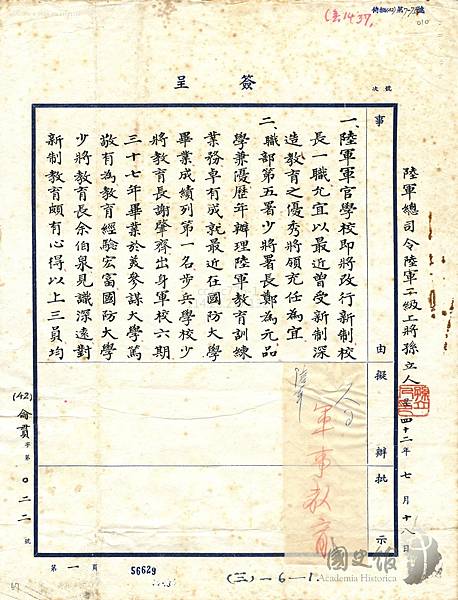 簽呈
號次
事由
擬辦
批示
陸軍總司令陸軍二級上將孫立人
四十二年七月十八日
一、陸軍軍官學校即將改行新制校
長一職允宜以最近曾受新制深
造教育之優秀將領充任為宜
二、職部第五署少將署長鄭為元品
學兼優歷年辦理陸軍教育訓練
業務卓有成就最近在國防大學
畢業成績列第一名步兵學校少
將教育長謝肇齊出身軍校六期
三十七年畢業於美參謀大學篤
敬有為教育經驗宏富國防大學
少將教育長余伯泉見識深遠對
新制教育頗有心得以上三員均
軍事教育
(42)侖貫字第〇二二號
第一頁
56629
(三)-6-1
010
67
國史館
Academia Historica